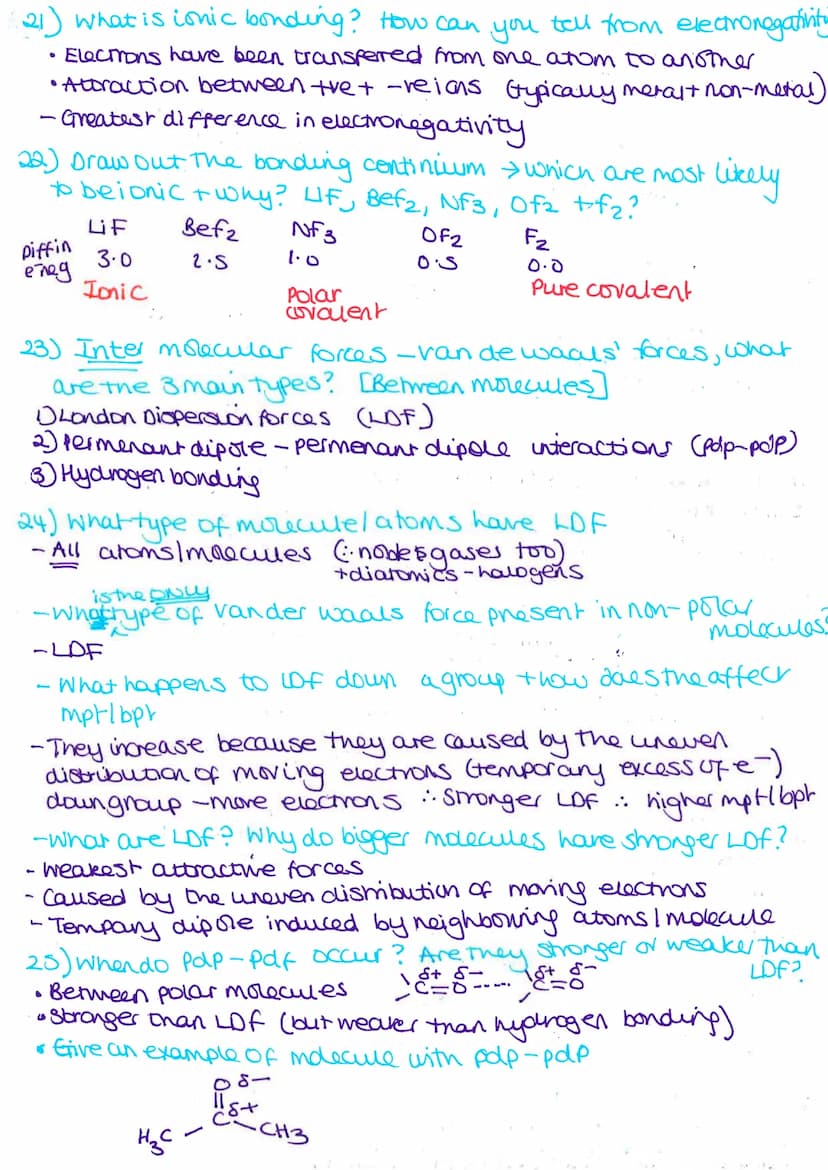 21) What is ionic bonding? How can you tell from electronegativity
• Electrons have been transfered from one atom to another
• Attraction between +ve + -ve ions (typically metal + non-metal)
- Greatest difference in electronegativity
22) Draw out the bonding continium → which are most likely
to be ionic + why? LiF, BeF2, NF3, OF2 + F2?
LiF BeF2 NF3 OF2 F2
Diff in
e'neg 3.0 2.5 1.0 0.5 0.0
Ionic Polar covalent Pure covalent
23) Inter molecular forces - van de waals' forces, what
are the 3 main types? [Between molecules]
1) London Dispersion forces (LDF)
2) Permenant dipole - permenant dipole interactions (pdp-pdp)
3) Hydrogen bonding
24) What type of molecule/atoms have LDF
- All atoms/molecules (∴ nobles gases too)
+ diatomics - halogens
is the ONLY
- What type of van der waals force present in non-polar
molecules?
- LDF
- What happens to LDF down a group + how does the affect
mpt/bpt
- They increase because they are caused by the uneven
distribution of moving electrons (temporary excess of e-)
down group - more electrons ∴ stronger LDF ∴ higher mpt/bpt
- What are LDF? Why do bigger molecules have stronger LDF?
- Weakest attractive forces
- Caused by the uneven distribution of moving electrons
- Tempary dipole induced by neighbouring atoms/molecule
25) When do pdp-pdf occur? Are they stronger or weaker than
LDF?
• Between polar molecules
δ+ δ- δ+ δ-
C=O----- C=O
• Stronger than LDF (but weaker than hydrogen bonding)
• Give an example of molecule with pdp-pdp
O δ-
C δ+
H3C CH3